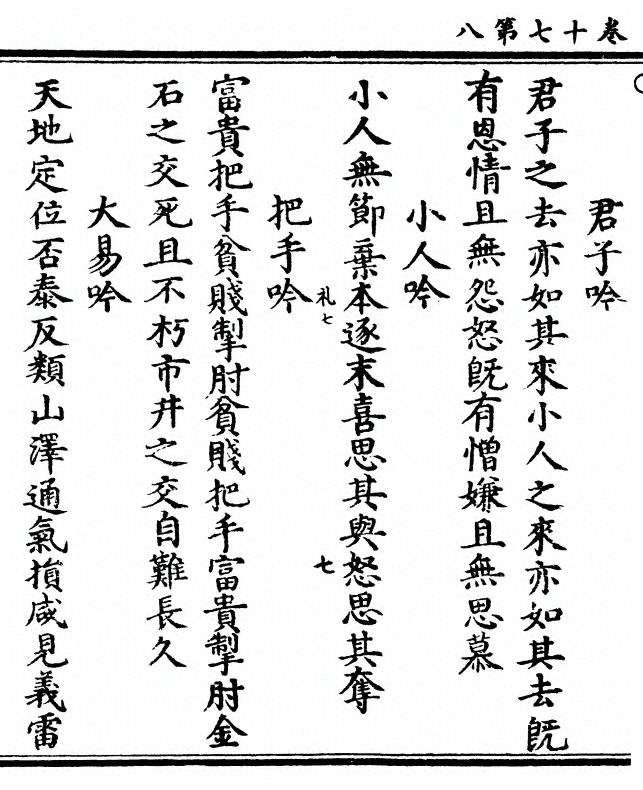 卷十七第八
君子吟
君子之去亦如其來小人之來亦如其去旣
有恩情且無怨怒旣有憎嫌且無思慕
小人吟
小人無節棄本逐末喜思其與怒思其奪
札七
七
把手吟
富貴把手貧賤掣肘貧賤把手富貴掣肘金
石之交死且不朽市井之交自難長久
大易吟
天地定位否泰反類山澤通氣損咸見義雷